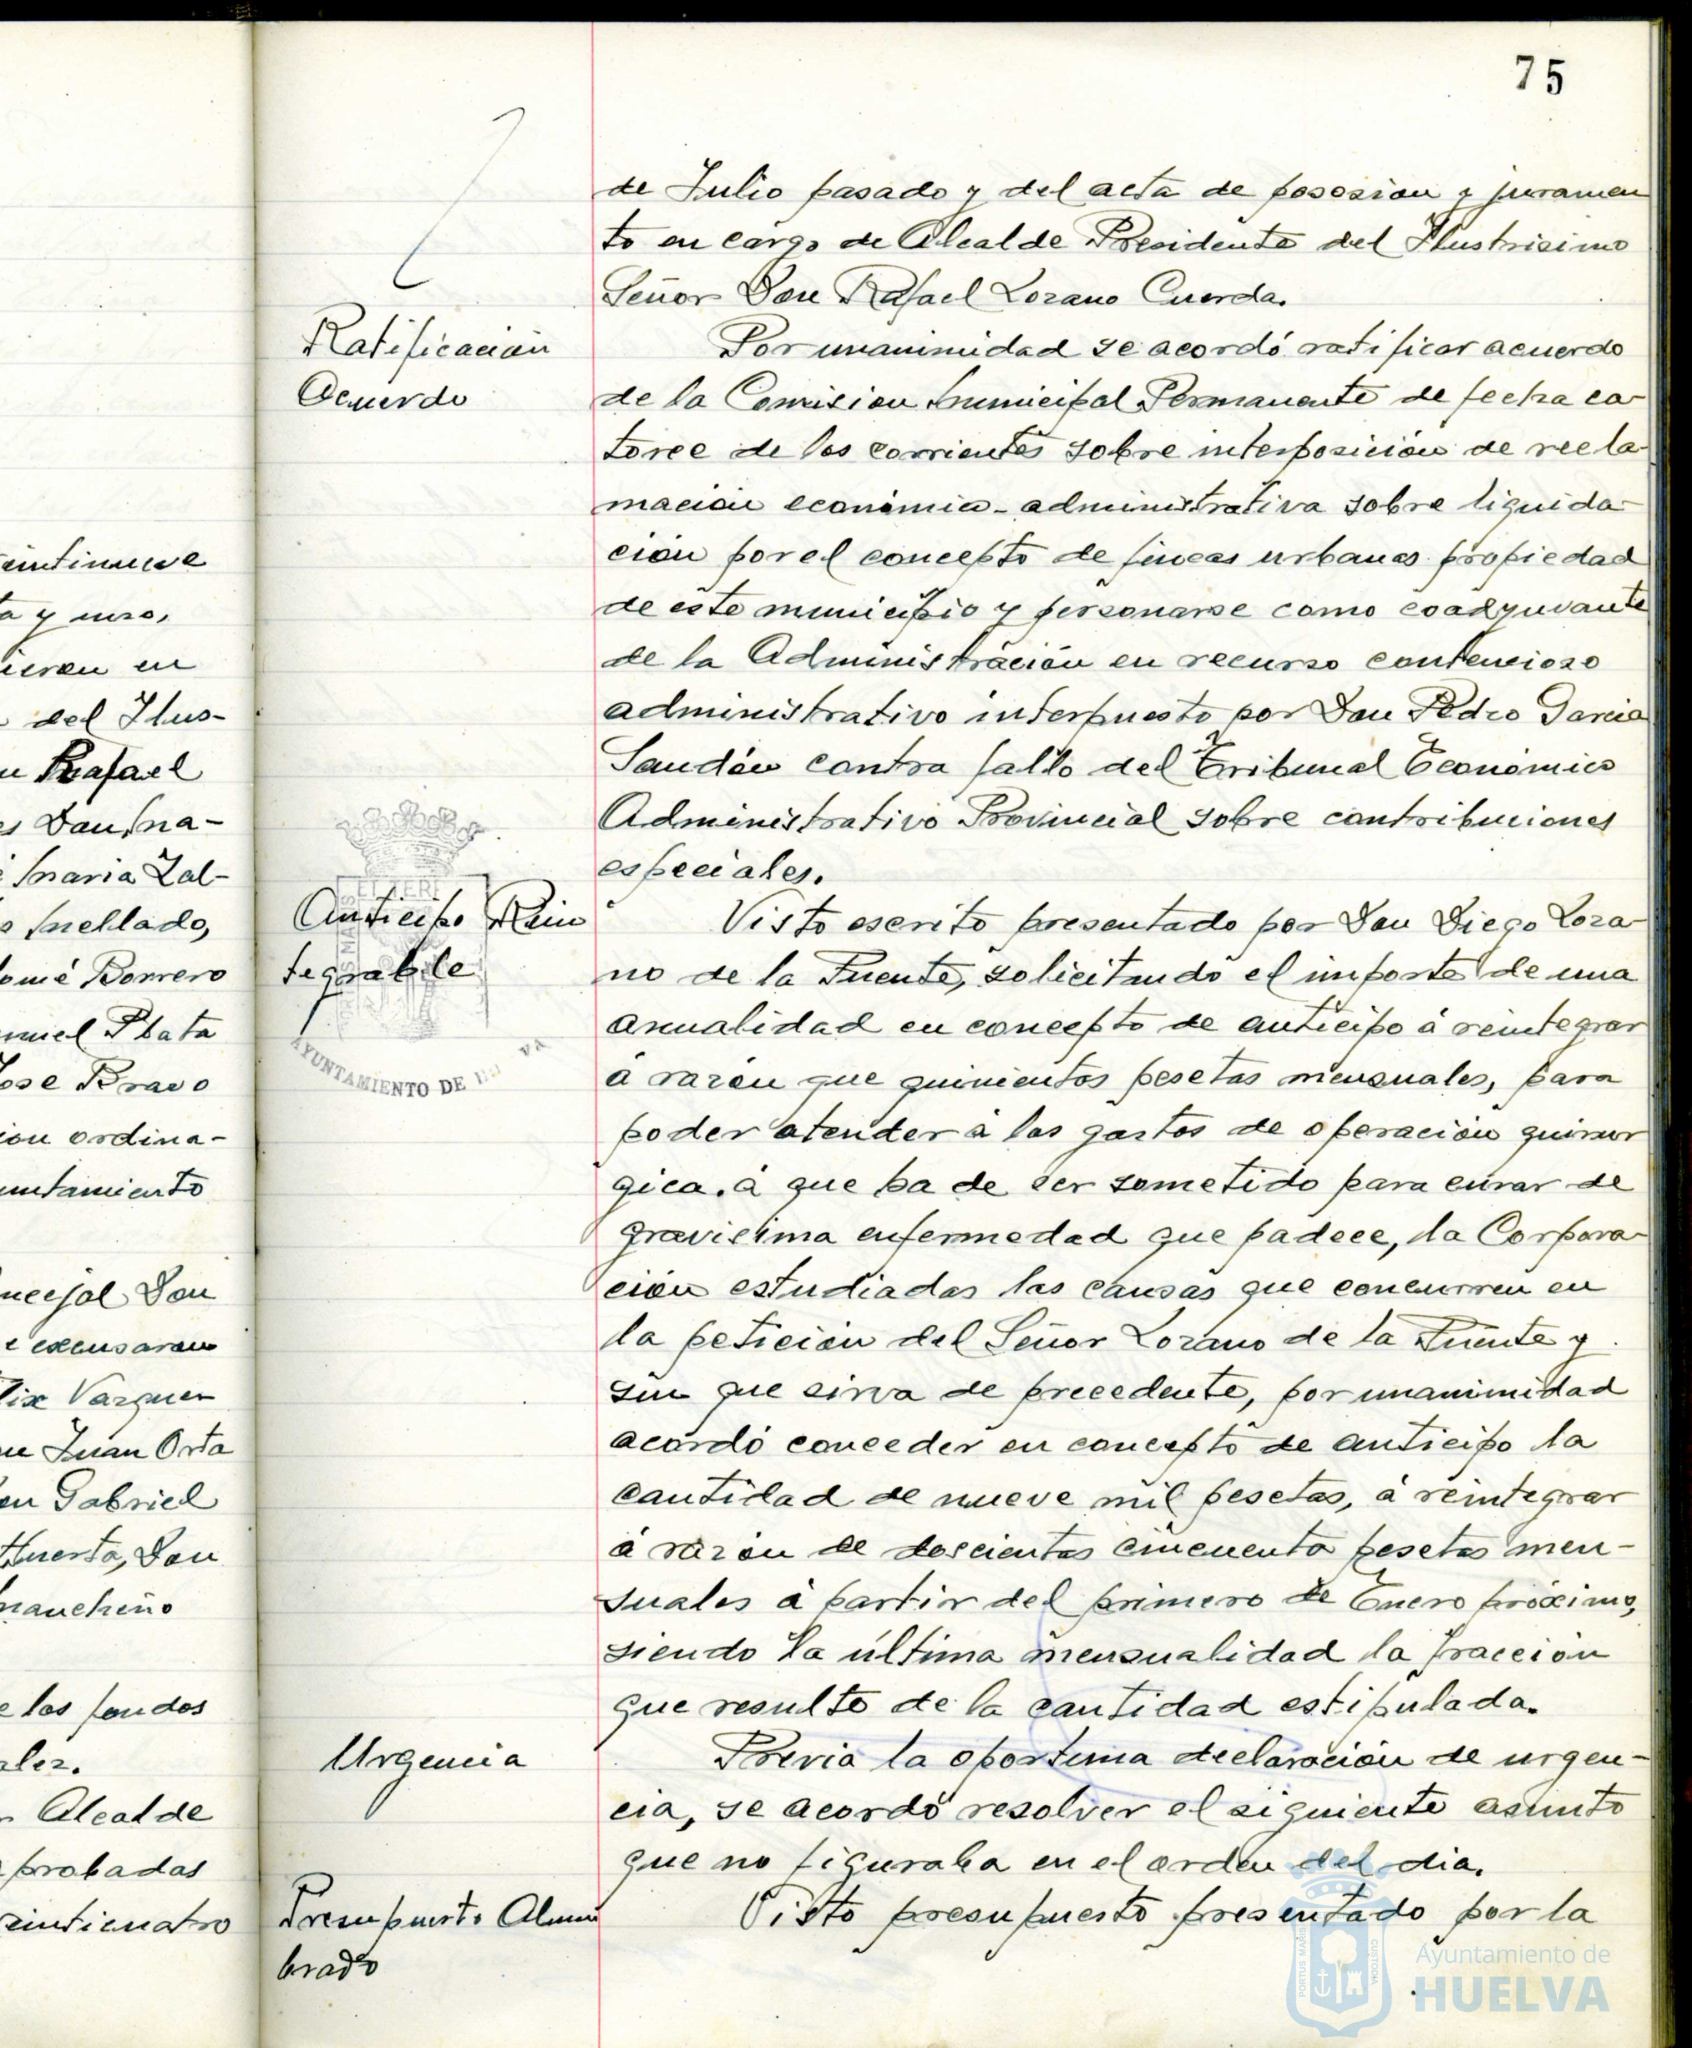 75
de Julio pasado y del acta de posesion y juramen
to en cargo de Alcalde Presidente del Ilustrisimo
Señor Don Rafael Lozano Cuerda.
Ratificación
Acuerdo
Por unanimidad se acordó ratificar acuerdo
de la Comision Municipal Permanente de fecha ca-
torce de los corrientes sobre interposición de recla-
mación económia-administrativa sobre liquida-
ción por el concepto de fincas urbanas propiedad
de este municipio y personarse como coadyuvante
de la Administración en recurso contencioso
administrativo interpuesto por Don Pedro Garcia
Sandón contra fallo del Tribunal Económico
Administrativo Provincial sobre contribuciones
especiales.
Anticipo Rein
tegrable
Visto escrito presentado por Don Diego Loza-
no de la Fuente, solicitando el importe de una
anualidad en concepto de anticipo á reintegrar
á razón que quinientos pesetas mensuales, para
poder atender á los gastos de operación quirur
gica. á que ha de ser sometido para curar de
gravisima enfermedad que padece, la Corpora-
ción estudiadas las causas que concurren en
la petición del Señor Lozano de la Fuente y
sin que sirva de precedente, por unanimidad
acordó conceder en concepto de anticipo la
cantidad de nueve mil pesetas, á reintegrar
á razón de doscientas cincuenta pesetas men-
suales á partir del primero de Enero próximo,
siendo la última mensualidad la fracción
que resulte de la cantidad estipulada.
Urgencia
Previa la oportuna declaración de urgen-
cia, se acordó resolver el siguiente asunto
que no figuraba en el orden del dia.
Presupuesto Alum
brado
Visto presupuesto presentado por la
AYUNTAMIENTO DE
eintinueve
a y uno,
ieron en
del Ilus-
Rafael
es Don Ina-
Maria Zal-
Mellado,
lomé Borrero
nuel Plata
José Bravo
ion ordina-
untamiento
ncejal Don
e excusaron
lix Vazquez
Juan Orta
on Gabriel
Huerta, Don
mancheño
e los fondos
ales.
Alcalde
probadas
einticuatro
PORTUS MARIS
CUSTODIA
Ayuntamiento de
HUELVA